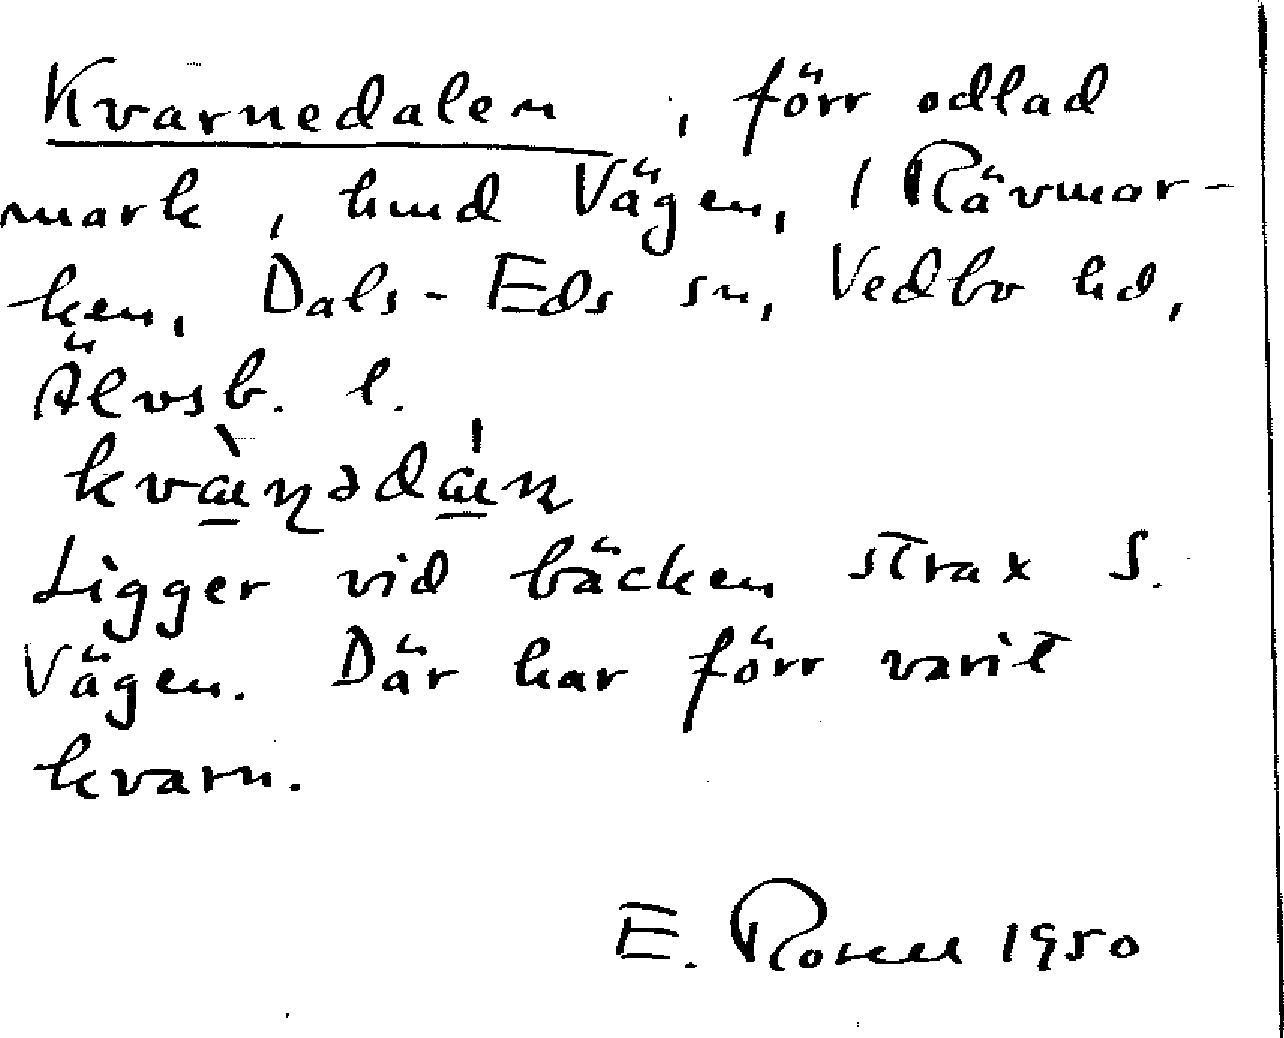 Kvarnedalen, förr odlad
mark, hmd Vägen, i Rävmar-
ken, Dals-Eds sn, Vedbo hd,
Älvsb. l.
Ligger vid bäcken strax S.
Vägen. Där har förr varit
kvarn.
E. Rosell 1950